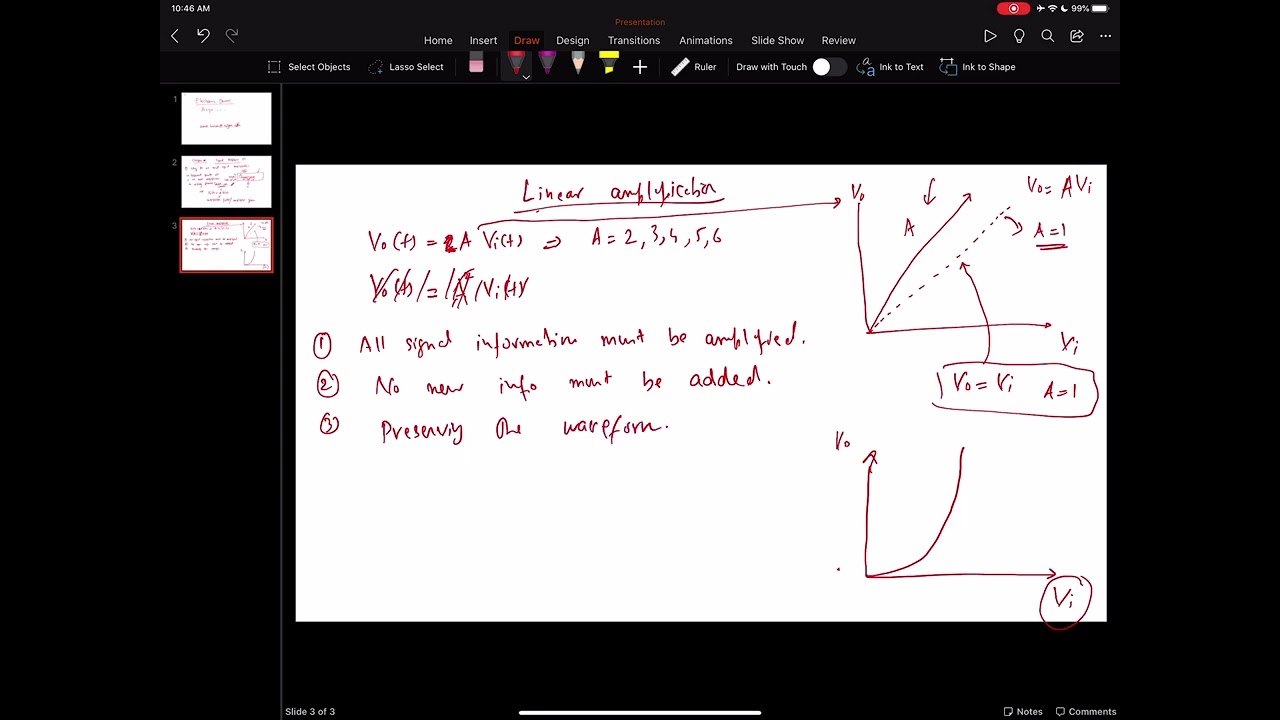 10:46 AM
99%
Presentation
Home Insert Draw Design Transitions Animations Slide Show Review
Select Objects Lasso Select Ruler Draw with Touch Ink to Text Ink to Shape
1
2
3
Linear amplification
Vo(t) = A Vi(t) ⇒ A = 2, 3, 4, 5, 6
Vo(t) = A Vi(t)
① All signal information must be amplified.
② No new info must be added.
③ Preserving the waveform.
Vo
A
Vo = AVi
A=1
Vi
Vo = Vi A=1
Vo
Vi
Slide 3 of 3
Notes Comments